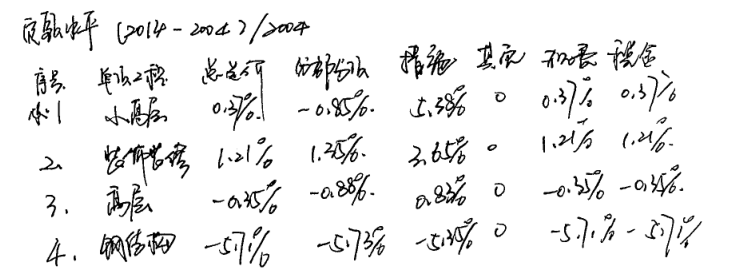 定额水平 (2014-2004)/2004
序号 单项工程 总造价 分部分项 措施 其它 规费 税金
1 小高层 0.37% -0.85% 5.38% 0 0.37% 0.37%
2. 装饰装修 1.21% 1.25% 3.65% 0 1.21% 1.21%.
3. 高层 -0.35% -0.88% 0.83% 0 -0.35% -0.35%.
4. 钢结构 -5.71% -5.73% -5.35% 0 -5.71% -5.71%